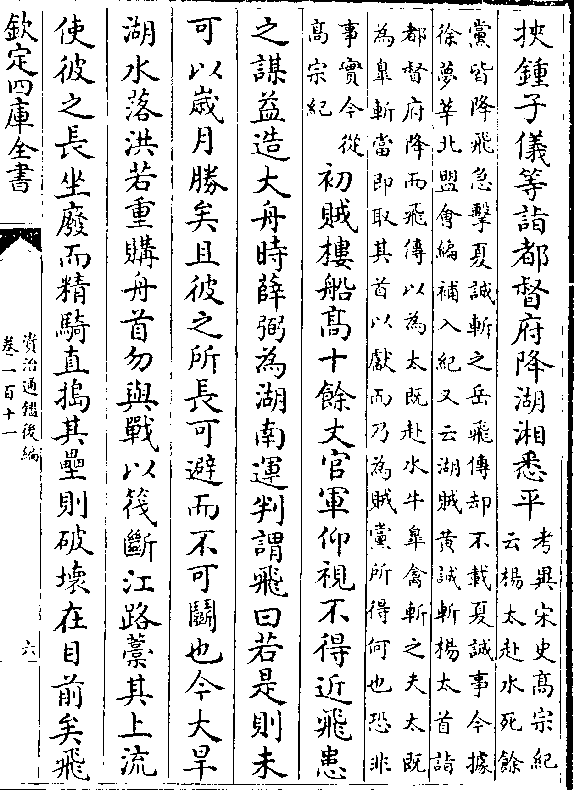 挾鍾子儀等詣都督府降湖湘悉平考異宋史髙宗紀
云楊太赴水死餘
黨皆降飛急擊夏誠斬之岳飛傳却不載夏誠事今據
徐夢莘北盟會編補入紀又云湖賊黄誠斬楊太首詣
都督府降而飛傳以為太既赴水牛臯禽斬之夫太既
為臯斬當即取其首以獻而乃為賊黨所得何也恐非
事實今從
髙宗紀
初賊樓船髙十餘丈官軍仰視不得近飛患
之謀益造大舟時薛弼為湖南運判謂飛曰若是則未
可以嵗月勝矣且彼之所長可避而不可鬭也今大旱
湖水落洪若重購舟首勿與戰以筏斷江路藁其上流
使彼之長坐廢而精騎直搗其壘則破壞在目前矣飛
欽定四庫全書
資治通鑑後編
卷一百十一
六